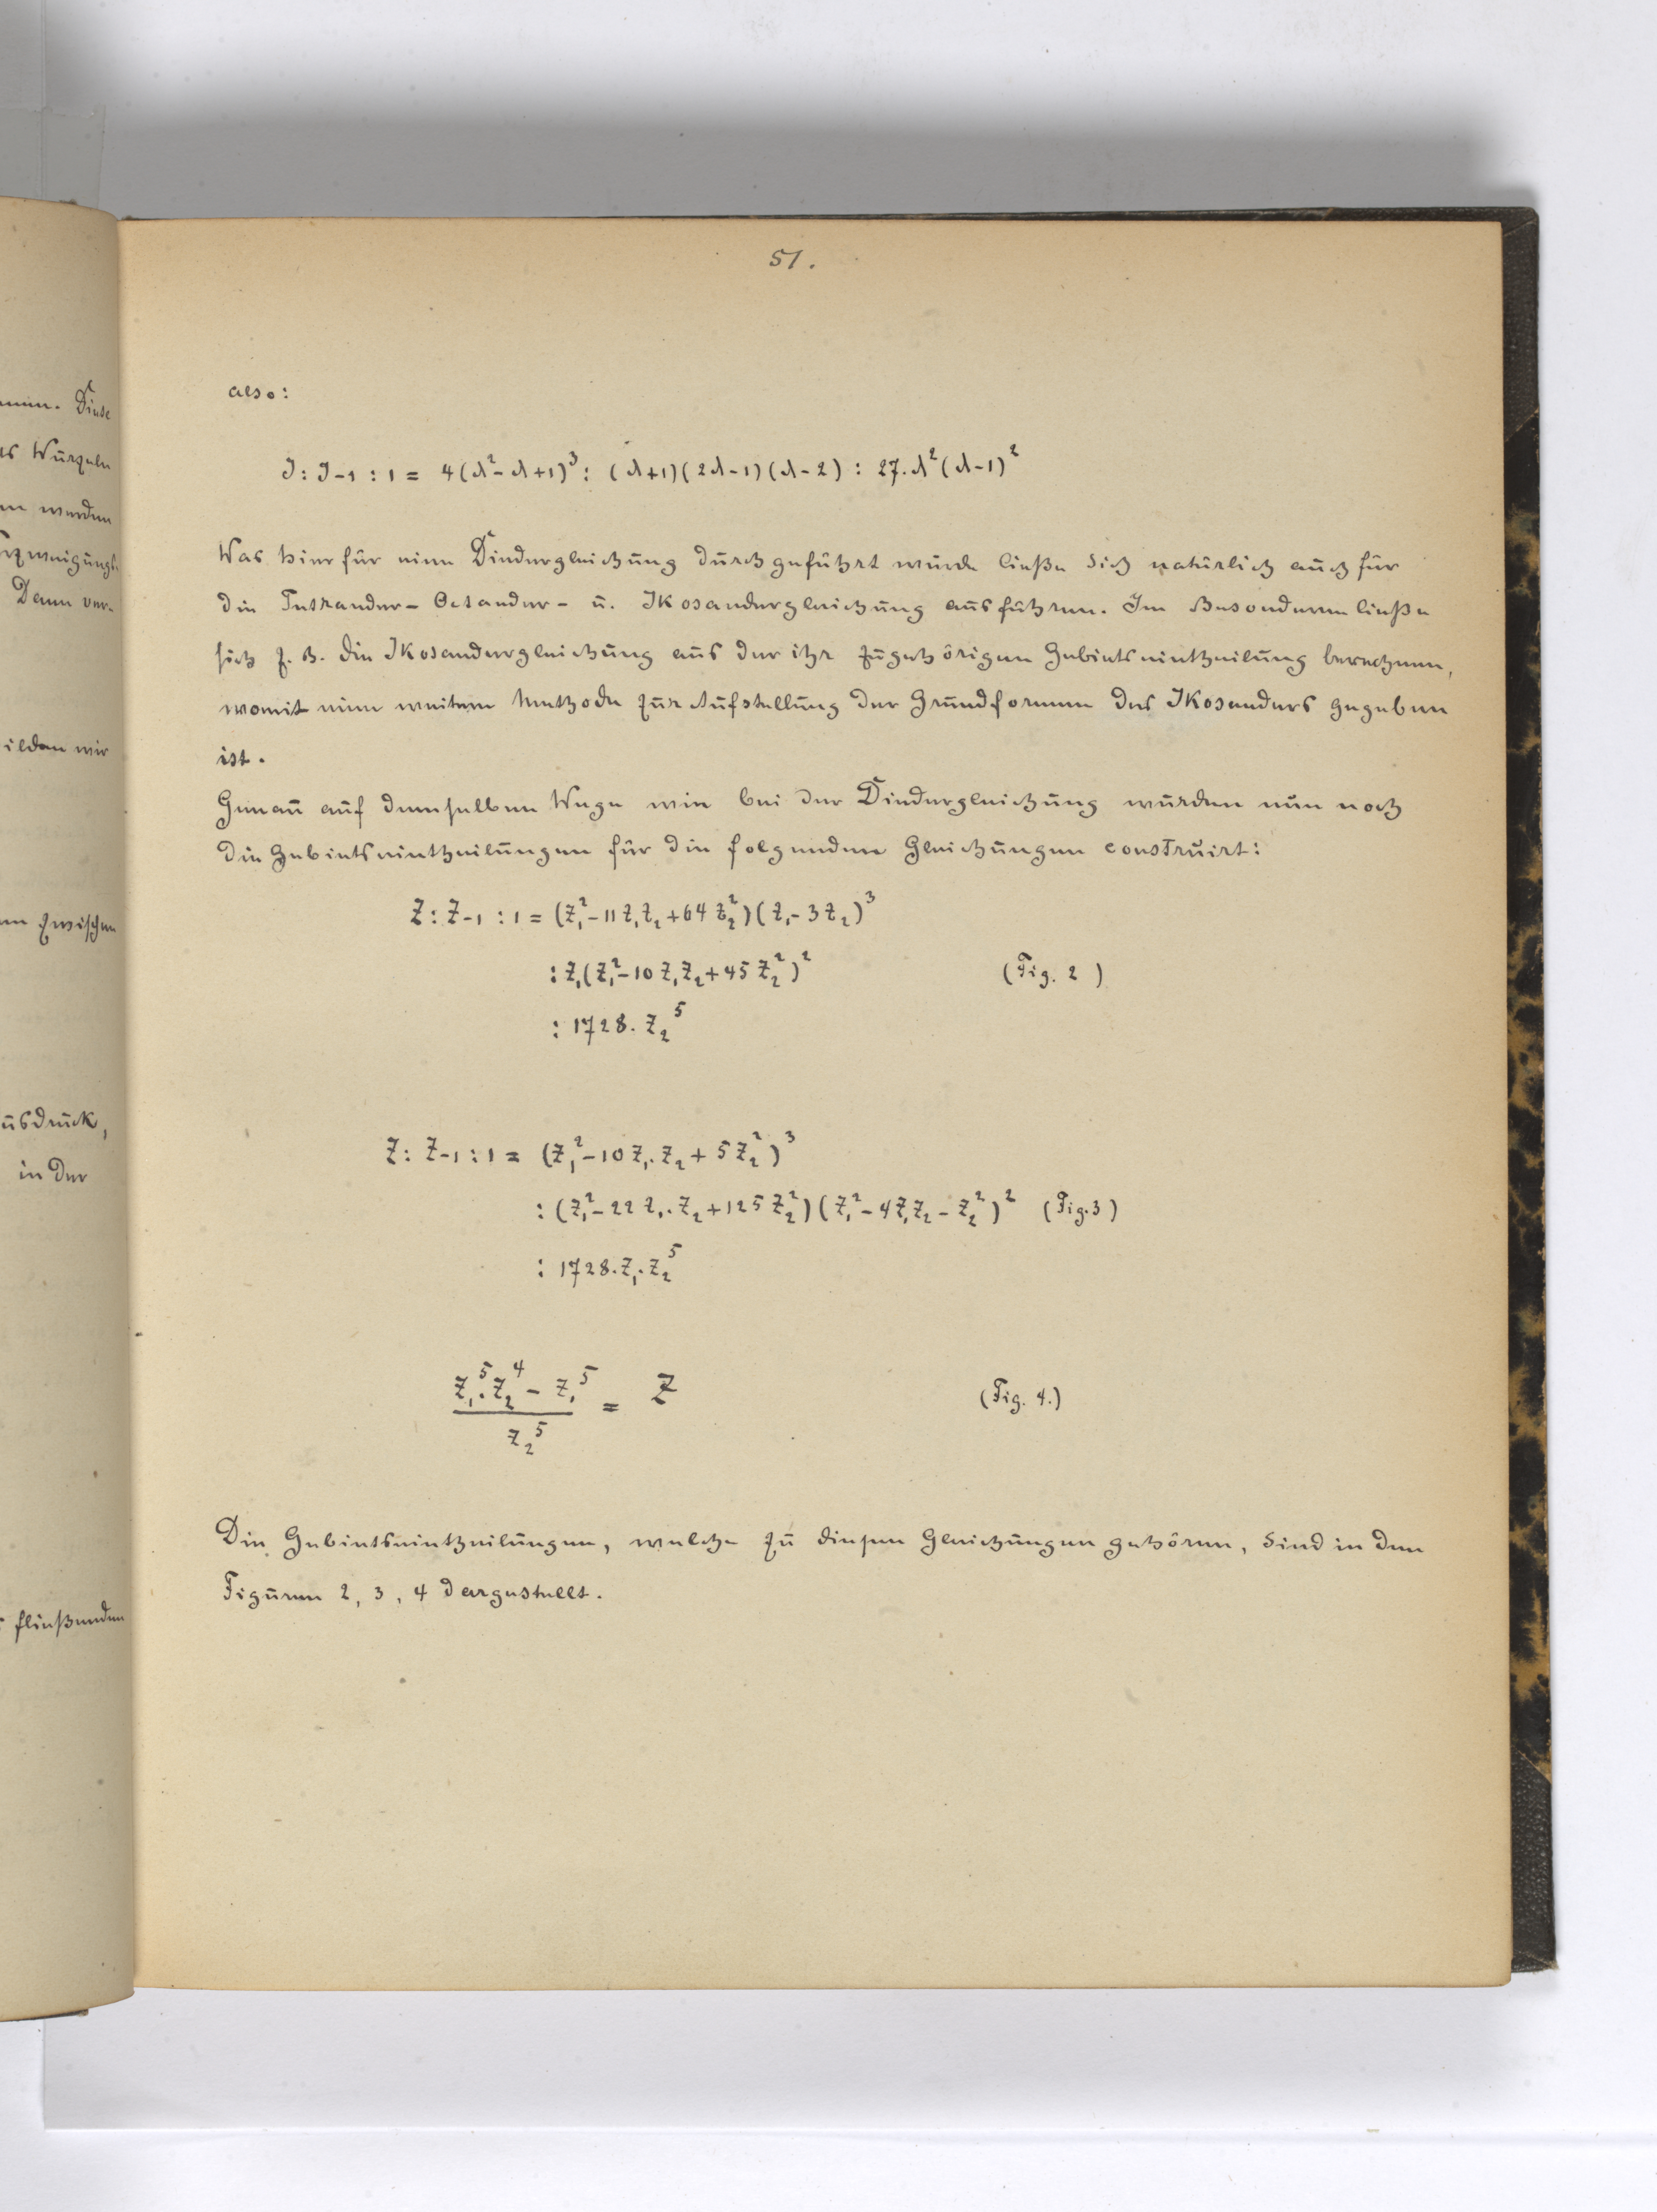 51.
also:
J : J-1 : 1 = 4(λ²-λ+1)³ : (λ+1)(2λ-1)(λ-2) : 27.λ²(λ-1)²
Was hier für eine Diedergleichung durchgeführt wurde ließe sich natürlich auch für
die Tetraeder- Octaeder- u. Ikosaedergleichung ausführen. Im Besonderen ließe
sich z. B. die Ikosaedergleichung aus der ihr zugehörigen Gebietseintheilung berechnen,
womit eine weitere Methode zur Aufstellung der Grundformen des Ikosaeders gegeben
ist.
Genau auf demselben Wege wie bei der Diedergleichung wurden nun noch
die Gebietseintheilungen für die folgenden Gleichungen construirt:
Z : Z-1 : 1 = (z₁²-11z₁z₂+64z₂²)(z₁-3z₂)³
: z₁(z₁²-10z₁z₂+45z₂²)² (Fig. 2)
: 1728. z₂⁵
Z : Z-1 : 1 = (z₁²-10z₁.z₂+5z₂²)³
: (z₁²-22z₁.z₂+125z₂²)(z₁²-4z₁z₂-z₂²)² (Fig.3)
: 1728.z₁.z₂⁵
z₁⁵.z₂⁴ - z₁⁵
= Z (Fig. 4.)
z₂⁵
Die Gebietseintheilungen, welche zu diesen Gleichungen gehören, sind in den
Figuren 2, 3, 4 dargestellt.
Diese
Wurzeln
werden
Dann ver-
bilden wir
zwischen
in der
fließenden